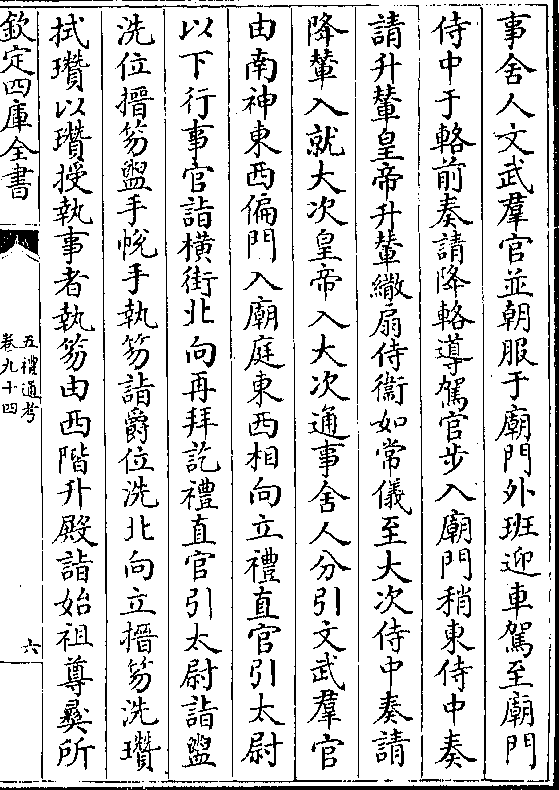 事舍人文武羣官並朝服于廟門外班迎車駕至廟門
侍中于輅前奏請降輅導駕官步入廟門稍東侍中奏
請升輦皇帝升輦繖扇侍衛如常儀至大次侍中奏請
降輦入就大次皇帝入大次通事舍人分引文武羣官
由南神東西偏門入廟庭東西相向立禮直官引太尉
以下行事官詣橫街北向再拜訖禮直官引太尉詣盥
洗位搢笏盥手帨手執笏詣爵位洗北向立搢笏洗瓚
拭瓚以瓚授執事者執笏由西階升殿詣始祖尊彝所
欽定四庫全書
五禮通考
卷九十四
六